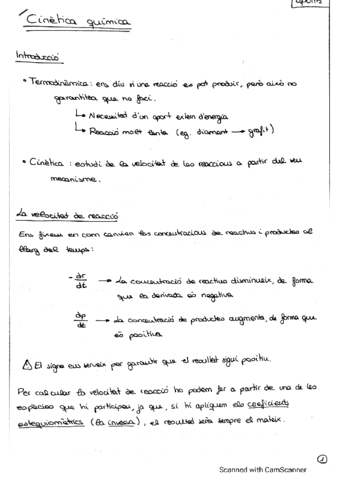 Apunts
Cinètica química
Introducció
• Termodinàmica: ens diu si una reacció es pot produir, però això no
garantitza que ho faci.
↳ Necessitat d'un aport extern d'energia
↳ Reacció molt lenta (eg. diamant → grafit)
• Cinètica: estudi de la velocitat de les reaccions a partir del seu
mecanisme.
La velocitat de reacció
Ens fixem en com canvien les concentracions de reactius i productes al
llarg del temps:
- dr/dt → La concentració de reactius disminueix, de forma
que la derivada és negativa
dp/dt → La concentració de productes augmenta, de forma que
és positiva
⚠ El signe ens serveix per garantir que el resultat sigui positiu.
Per calcular la velocitat de reacció ho podem fer a partir de una de les
espècies que hi participen, ja que, si hi apliquem els coeficients
estequiomètrics (la inversa), el resultat serà sempre el mateix.
1
Scanned with CamScanner